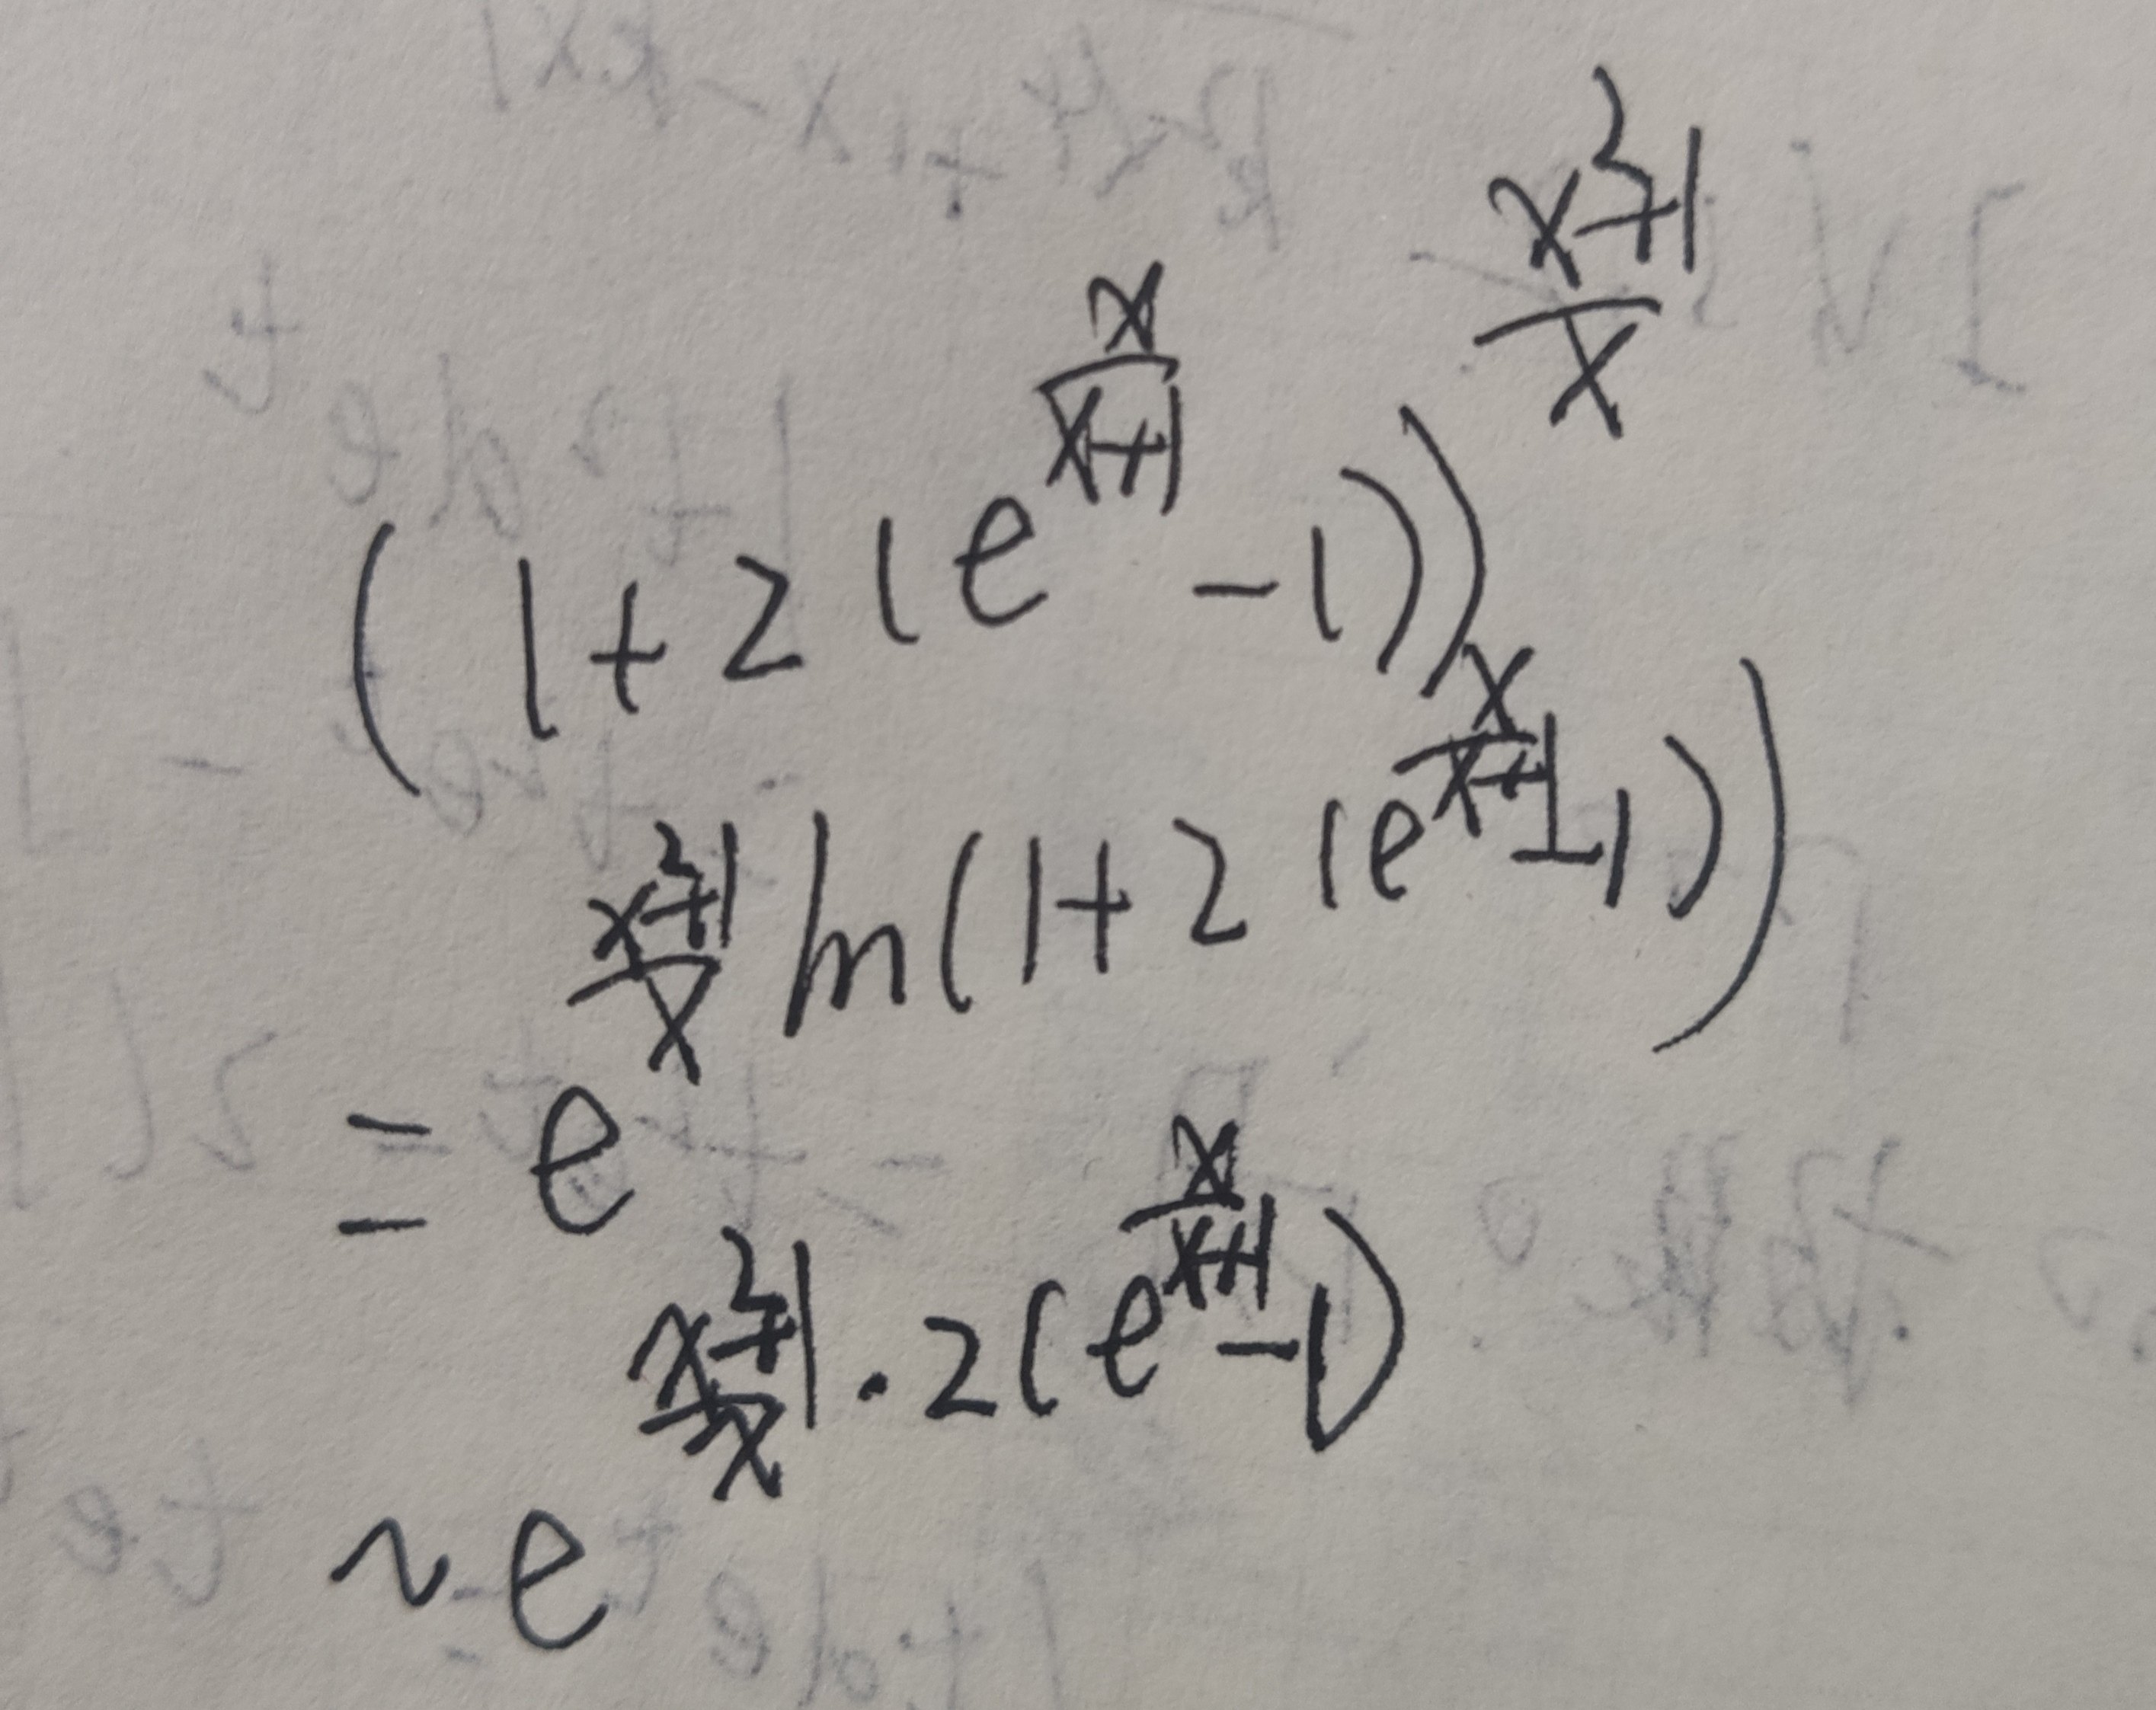 (1+2(e^{\frac{x}{x+1}}-1))^{\frac{x^2+1}{x}}
=e^{\frac{x^2+1}{x}ln(1+2(e^{\frac{x}{x+1}}-1))}
~e^{\frac{x^2+1}{x}·2(e^{\frac{x}{x+1}}-1)}